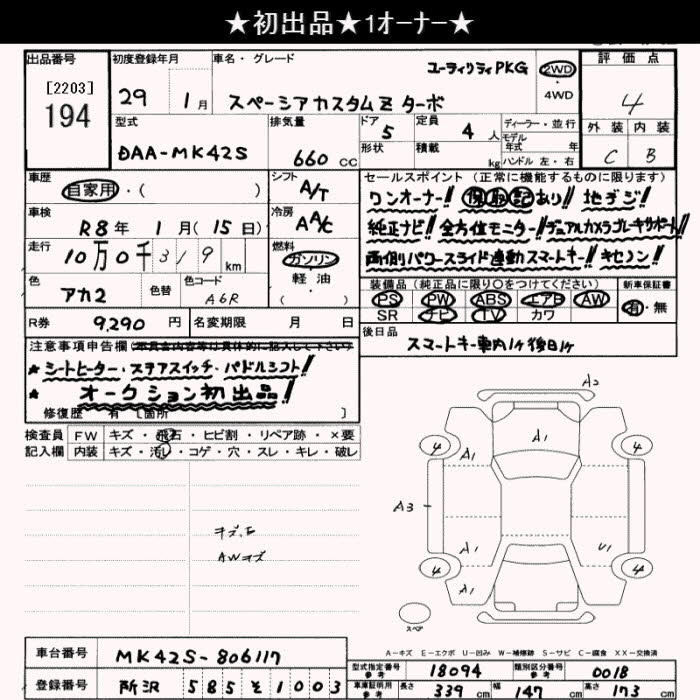 ★初出品★1オーナー★
出品番号
[2203]
194
初度登録年月
29 1月
車名・グレード
ユーティリティPKG
スペーシアカスタムZ ターボ
2WD
・
4WD
評価点
4
外装 内装
C B
型式
DAA-MK42S
排気量
660 CC
ドア
5
形状
定員
4人
積載
kg
ディーラー・並行
モデル
年式 年
ハンドル 左・右
車歴
自家用・( )
シフト
A/T
車検
R8年 1月(15日)
冷房
AAC
走行
10万0千319km
燃料
ガソリン
・
軽油
( )
色
アカ2
色替
色コード
A6R
R券
9,290円
名変期限 月 日
セールスポイント(正常に機能するものに限ります)
ワンオーナー!! 保取記あり!! 地デジ!
純正ナビ! 全方位モニター! デュアルカメラブレーキサポート!
両側パワースライド連動スマートキー! キセノン!
装備品(純正品に限り○をつけてください)
PS PW ABS エアB AW
SR ナビ TV カワ
新車保証書
有・無
後日品
スマートキー車内1ヶ後日1ヶ
注意事項申告欄
★シートヒーター・ステアスイッチ・パドルシフト!
★オークション初出品!
修復歴 有 [箇所 ]
検査員
記入欄
FW キズ・飛石・ヒビ割・リペア跡・×要
内装 キズ・汚レ・コゲ・穴・スレ・キレ・破レ
AWキズ
A2
A1
4 A1 4
A3
A1 U1
4 4
スペア
A-キズ E-エクボ U-凹み W-補修跡 S-サビ C-腐食 XX-交換済
車台番号
MK42S-806117
登録番号
所沢 585 そ 1003
型式指定番号
参考
18094
類別区分番号
参考
0018
車庫証明用
参考
長さ 339cm 幅 147cm 高さ 173cm